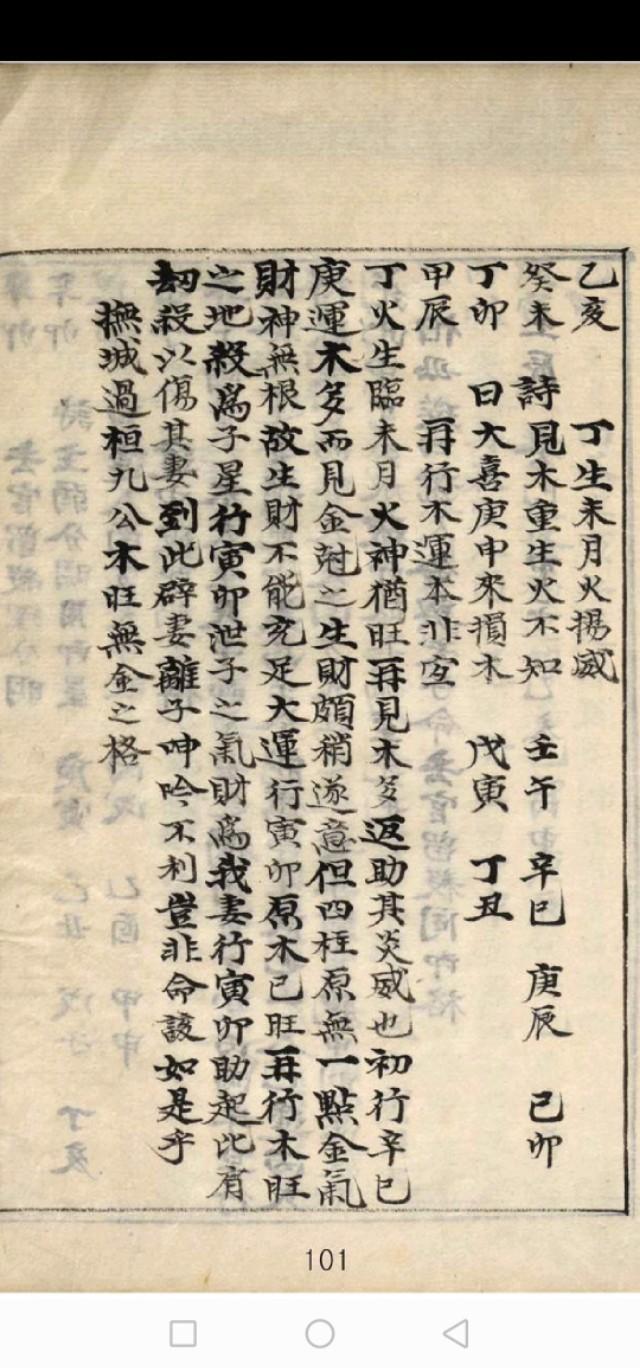 乙亥 丁生未月火揚威
癸未 詩見木重生火不知 壬午 辛巳 庚辰 己卯
丁卯 曰大喜庚申來損木 戊寅 丁丑
甲辰 再行木運本非宜
丁火生臨未月火神猶旺再見木多返助其炎威也初行辛巳
庚運木多而見金尅之生財頗稍遂意但四柱原無一點金氣
財神無根故生財不能充足大運行寅卯原木已旺再行木旺
之地殺爲子星行寅卯泄子之氣財爲我妻行寅卯助起比有
刼殺以傷其妻到此辟妻離子呻吟不利豈非命該如是乎
撫城過桓九公木旺無金之格
101